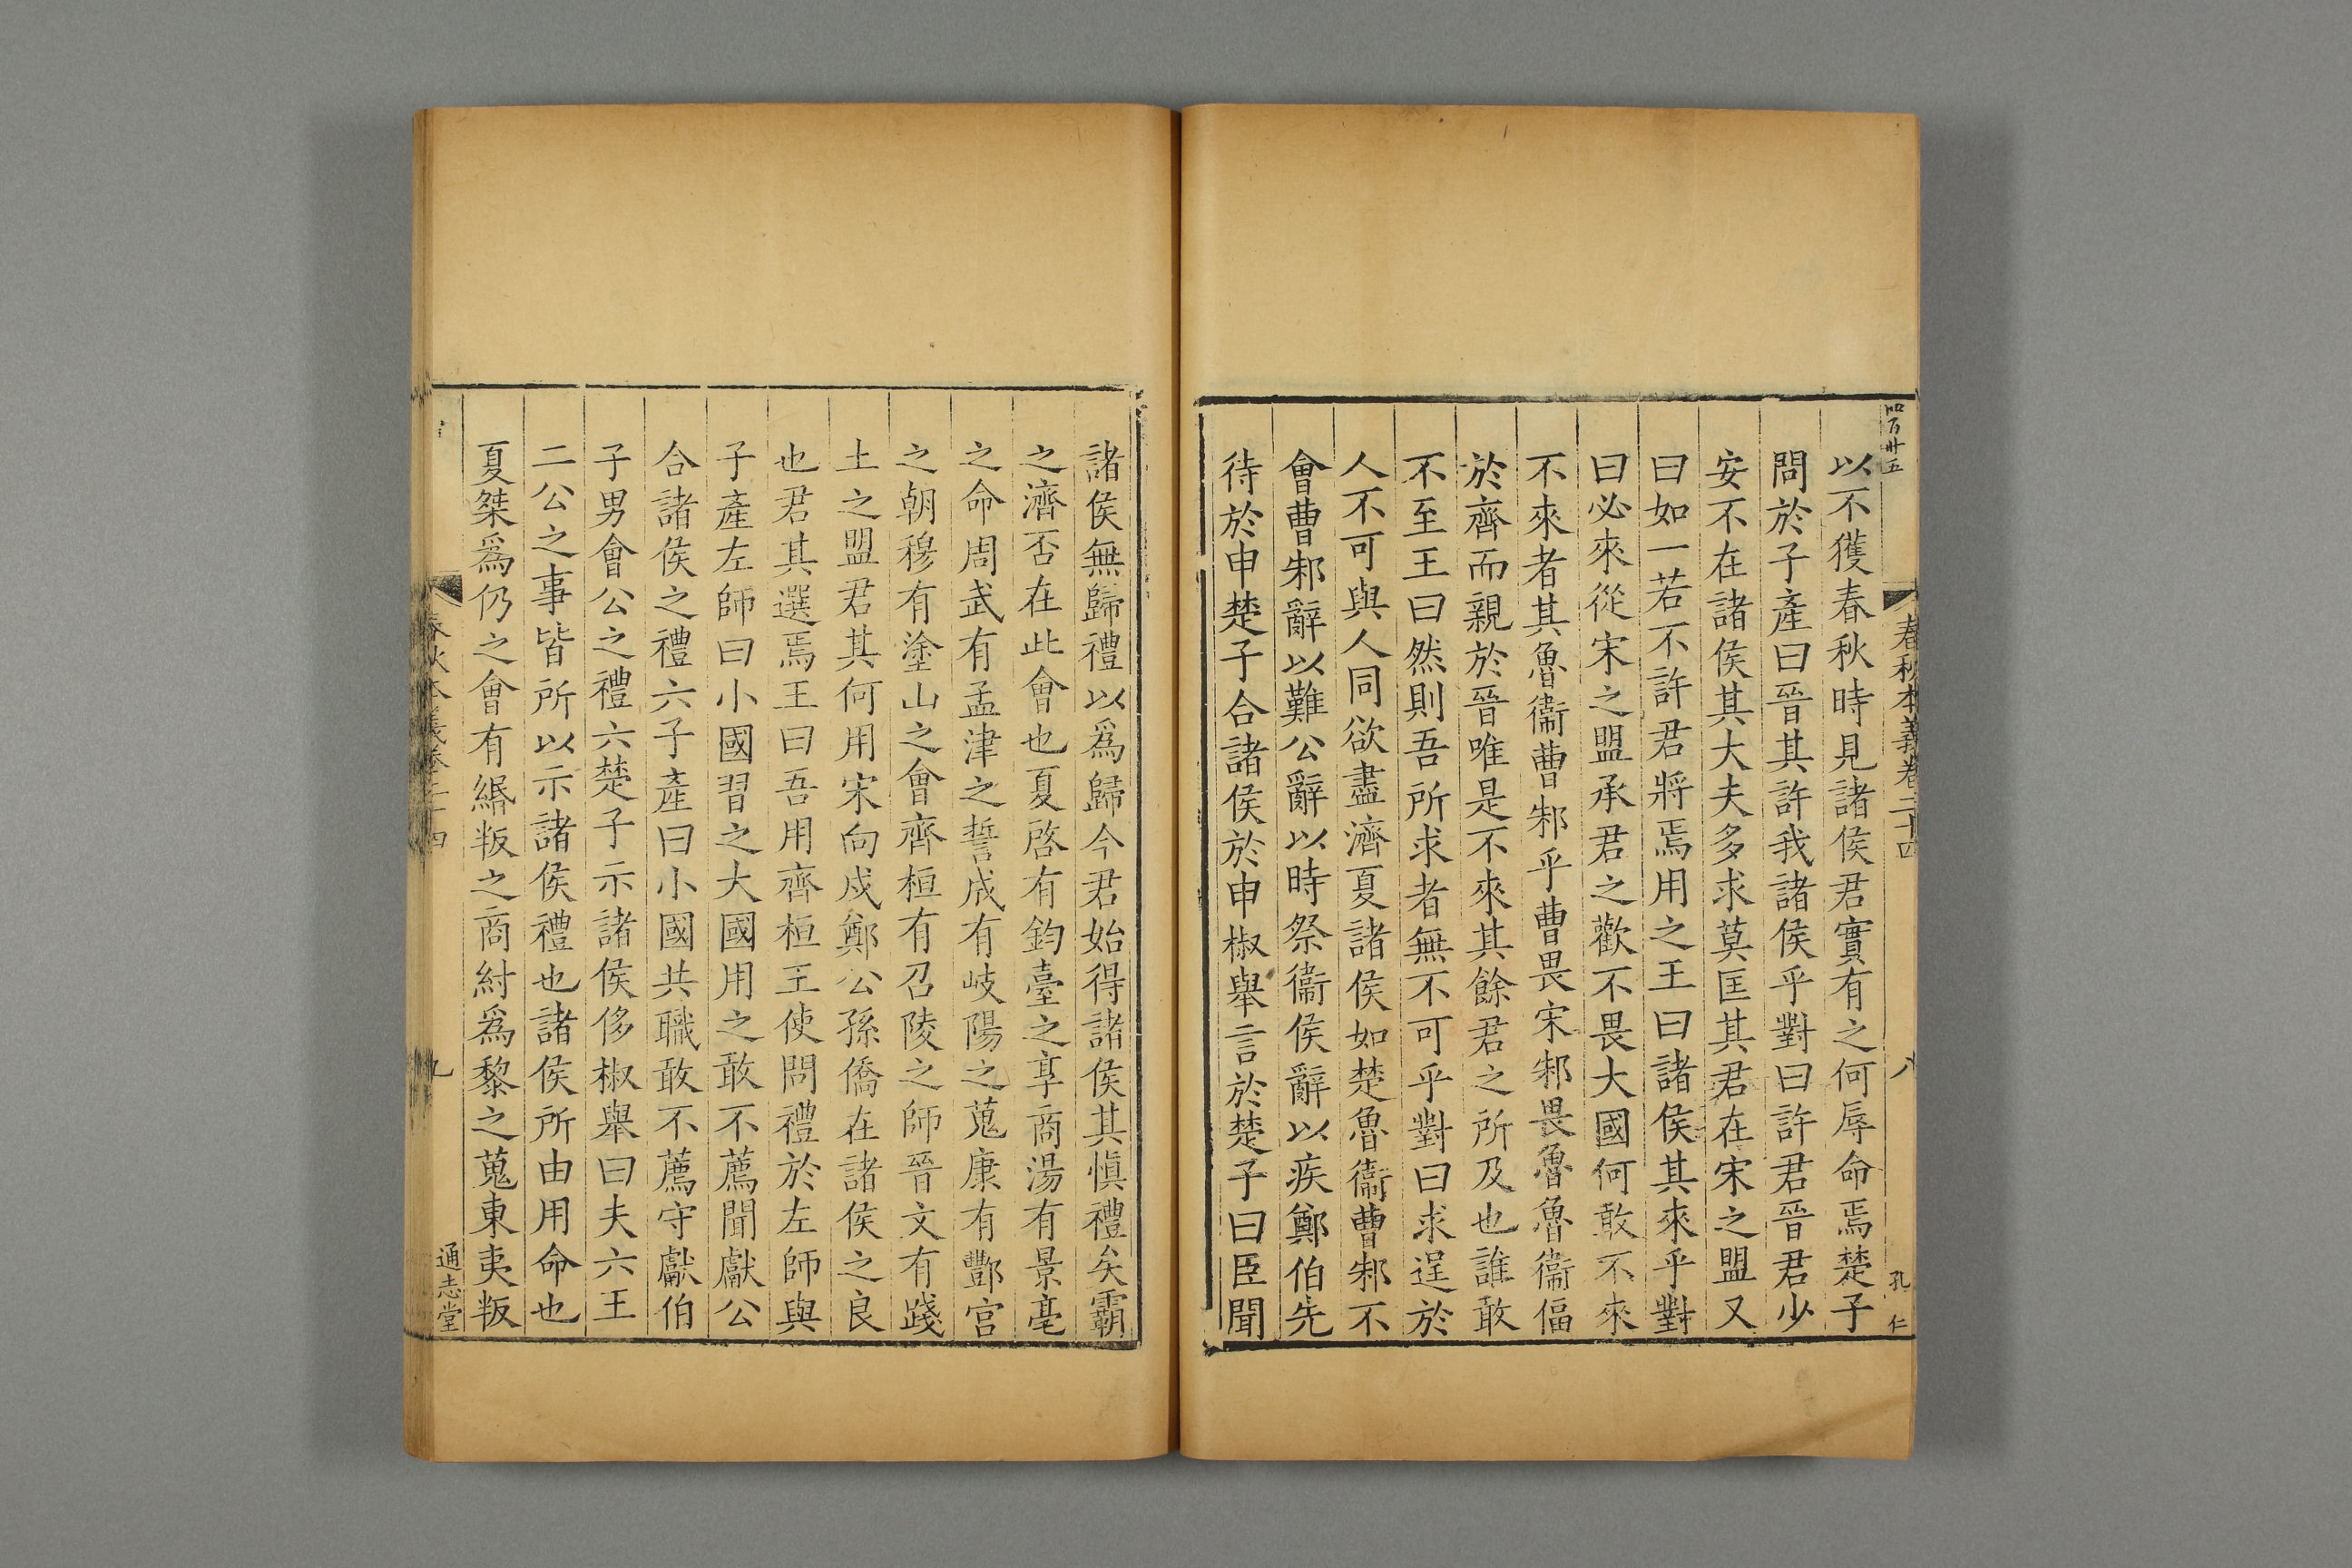 春秋本義卷二十四
八
孔仁
以不獲春秋時見諸侯君實有之何辱命焉楚子
問於子產曰晉其許我諸侯乎對曰許君晉君少
安不在諸侯其大夫多求莫匡其君在宋之盟又
曰如一若不許君將焉用之王曰諸侯其來乎對
曰必來從宋之盟承君之歡不畏大國何敢不來
不來者其魯衞曹邾乎曹畏宋邾畏魯魯衞偪
於齊而親於晉唯是不來其餘君之所及也誰敢
不至王曰然則吾所求者無不可乎對曰求逞於
人不可與人同欲盡濟夏諸侯如楚魯衞曹邾不
會曹邾辭以難公辭以時祭衞侯辭以疾鄭伯先
待於申楚子合諸侯於申椒舉言於楚子曰臣聞
諸侯無歸禮以爲歸今君始得諸侯其愼禮矣霸
之濟否在此會也夏啓有鈞臺之享商湯有景亳
之命周武有孟津之誓成有岐陽之蒐康有酆宮
之朝穆有塗山之會齊桓有召陵之師晉文有踐
土之盟君其何用宋向戌鄭公孫僑在諸侯之良
也君其選焉王曰吾用齊桓王使問禮於左師與
子產左師曰小國習之大國用之敢不薦聞獻公
合諸侯之禮六子產曰小國共職敢不薦守獻伯
子男會公之禮六楚子示諸侯侈椒舉曰夫六王
二公之事皆所以示諸侯禮也諸侯所由用命也
夏桀爲仍之會有緡叛之商紂爲黎之蒐東夷叛
春秋本義卷二十四
九
通志堂